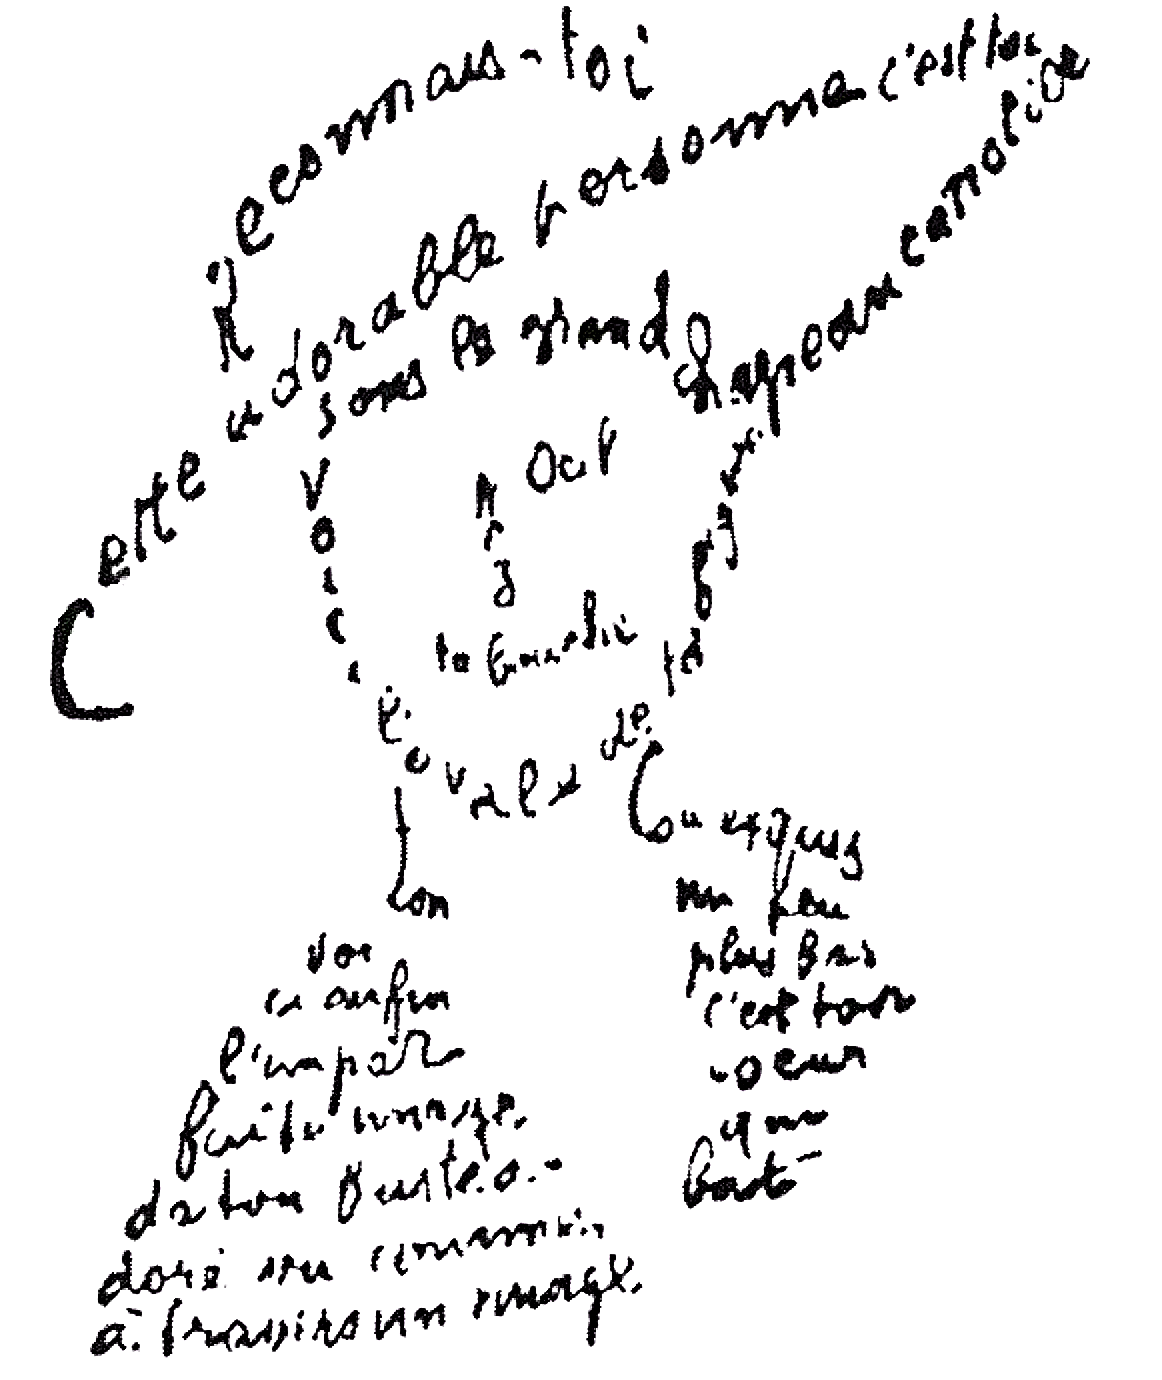 Reconnais-toi
Cette adorable personne c'est toi
sous le grand chapeau canotier
Oeil
Nez
ta bouche
Voici l'ovale de ta figure
ton cou exquis
Voi
ci enfin
l'impar
faite image
de ton buste a
doré vu comme
à travers un nuage
un peu
plus bas
c'est ton
coeur
qui
bat